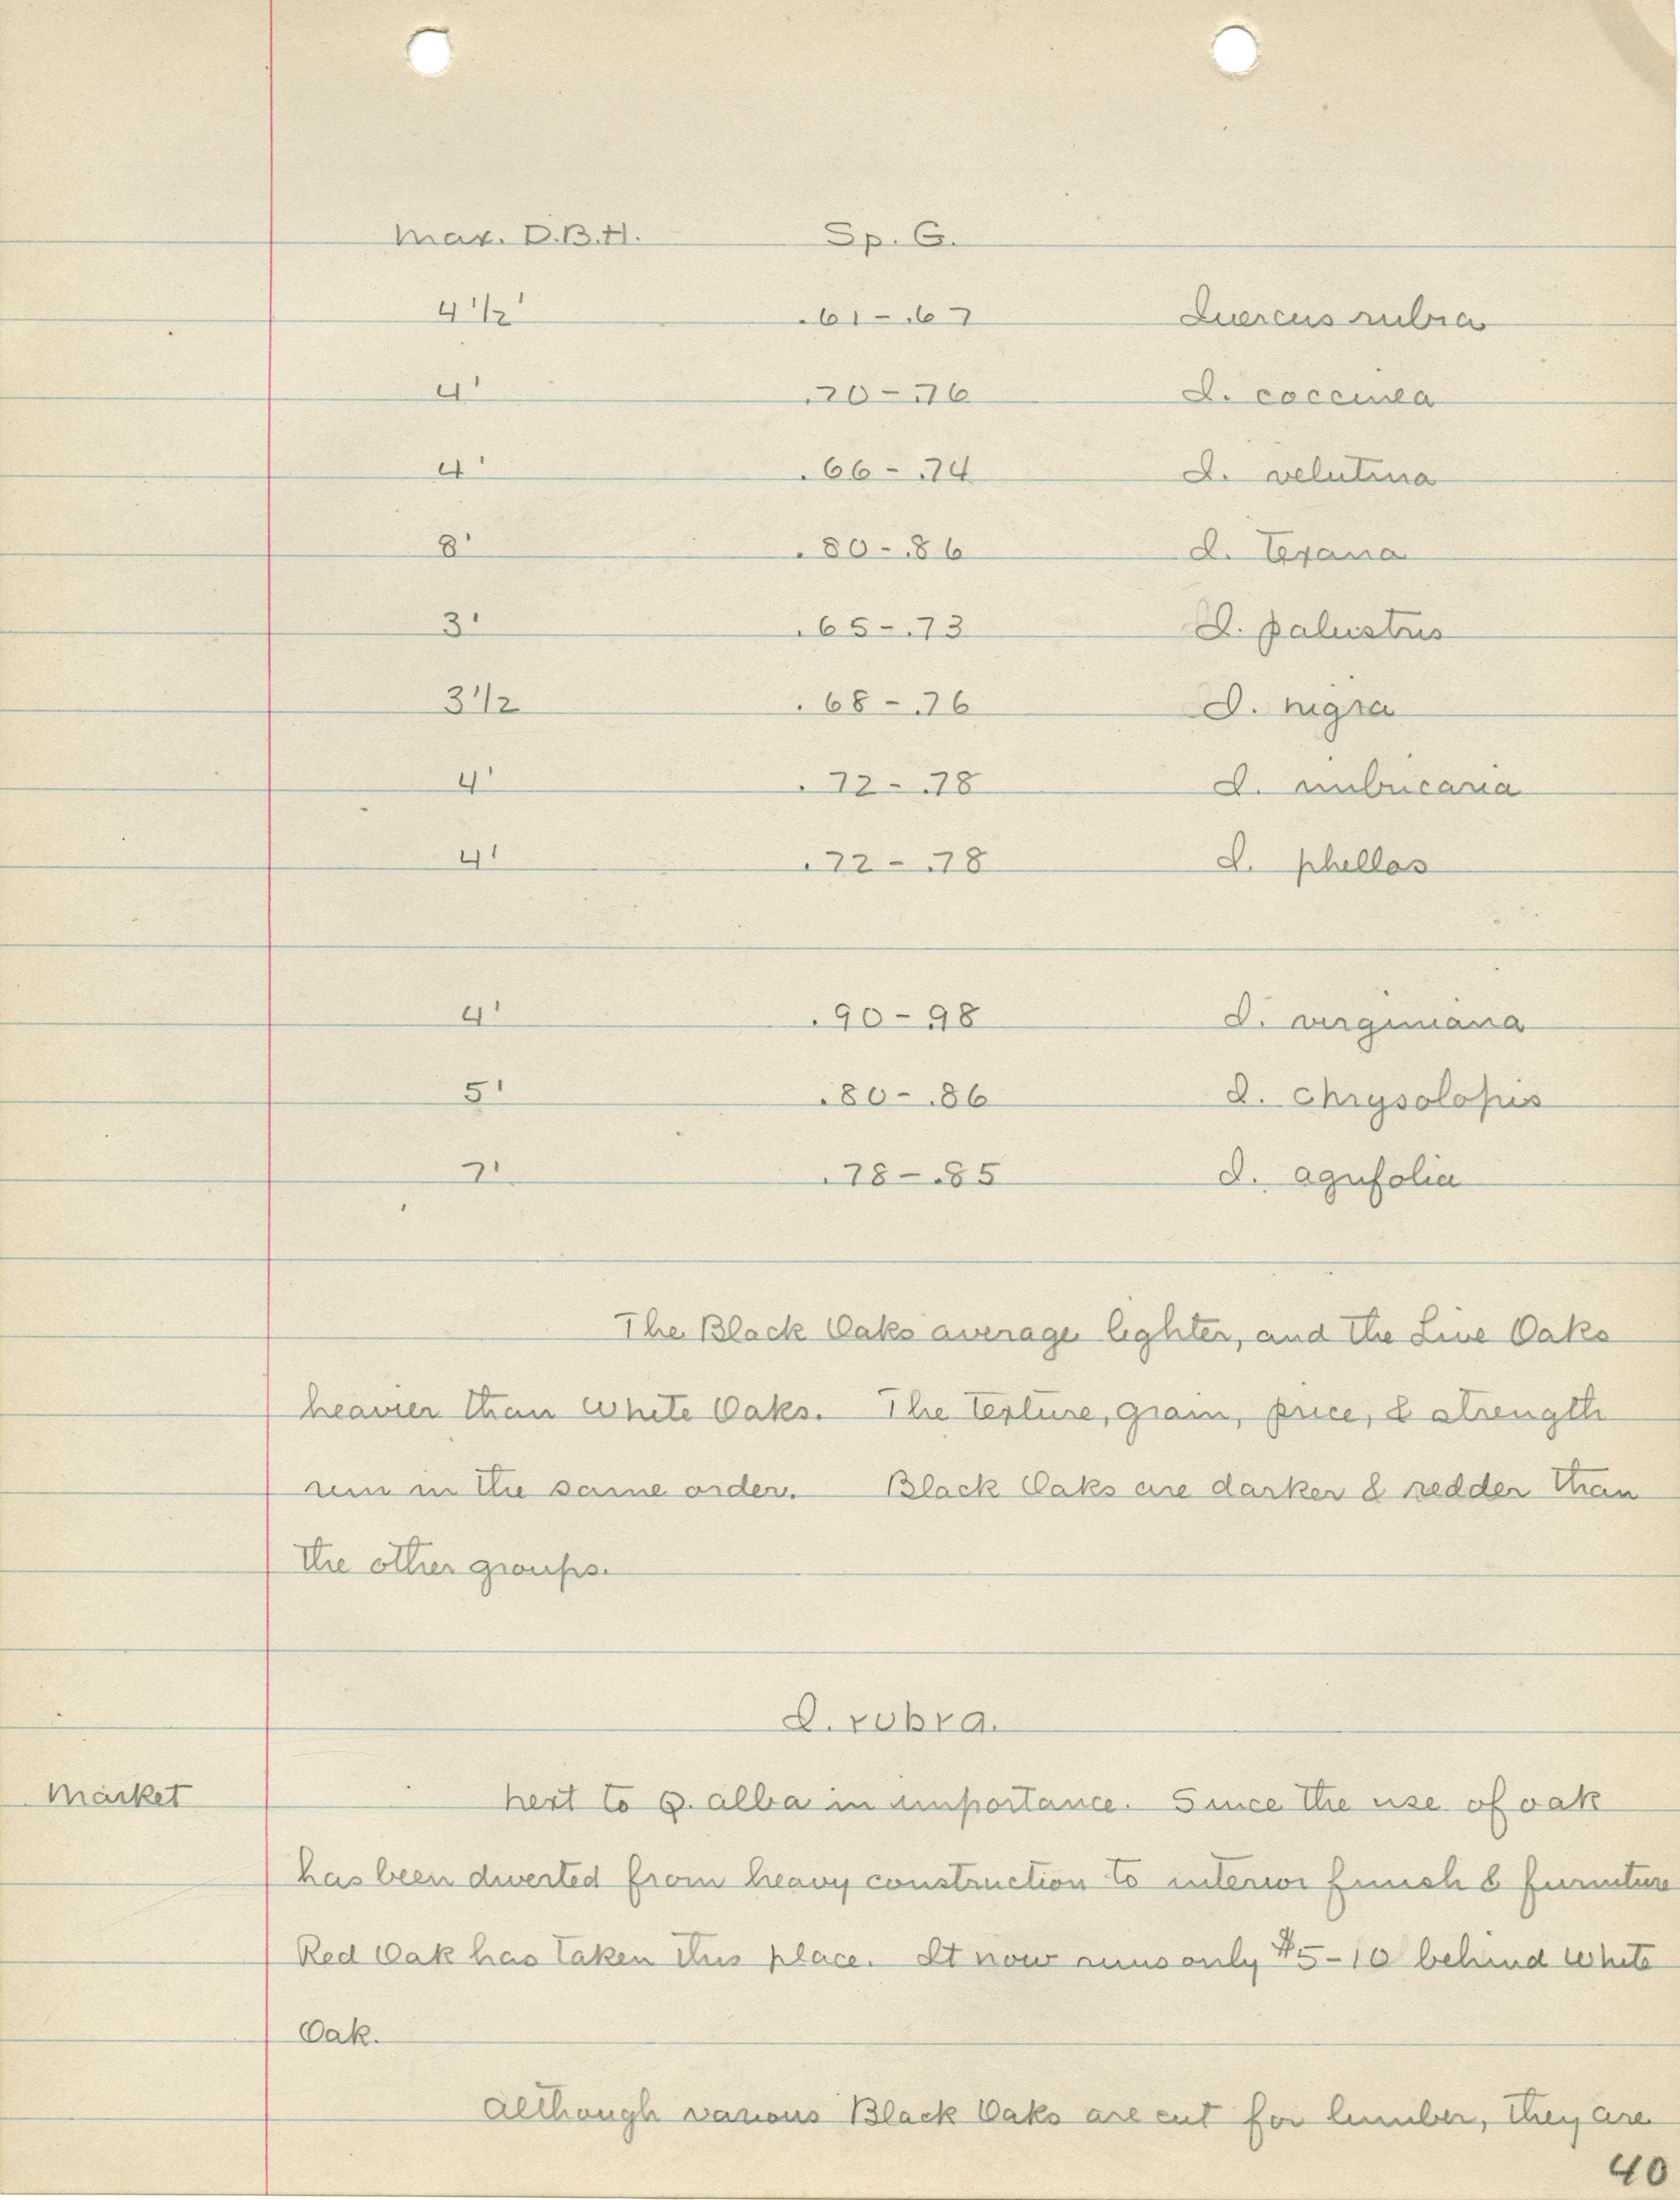 Max. D.B.H. Sp. G.
4 1/2' .61-.67 Quercus rubra
4' .70-.76 Q. coccinea
4' .66-.74 Q. velutina
8' .80-.86 Q. texana
3' .65-.73 Q. palustris
3 1/2 .68-.76 Q. nigra
4' .72-.78 Q. imbricaria
4' .72-.78 Q. phellos
4' .90-.98 Q. virginiana
5' .80-.86 Q. chrysolopis
7' .78-.85 Q. agrifolia
The Black Oaks average lighter, and the Live Oaks
heavier than White Oaks. The texture, grain, price, & strength
run in the same order. Black Oaks are darker & redder than
the other groups.
Q. rubra.
Market Next to Q. alba in importance. Since the use of oak
has been diverted from heavy construction to interior finish & furniture
Red Oak has taken this place. It now runs only $5-10 behind White
Oak.
Although various Black Oaks are cut for lumber, they are
40